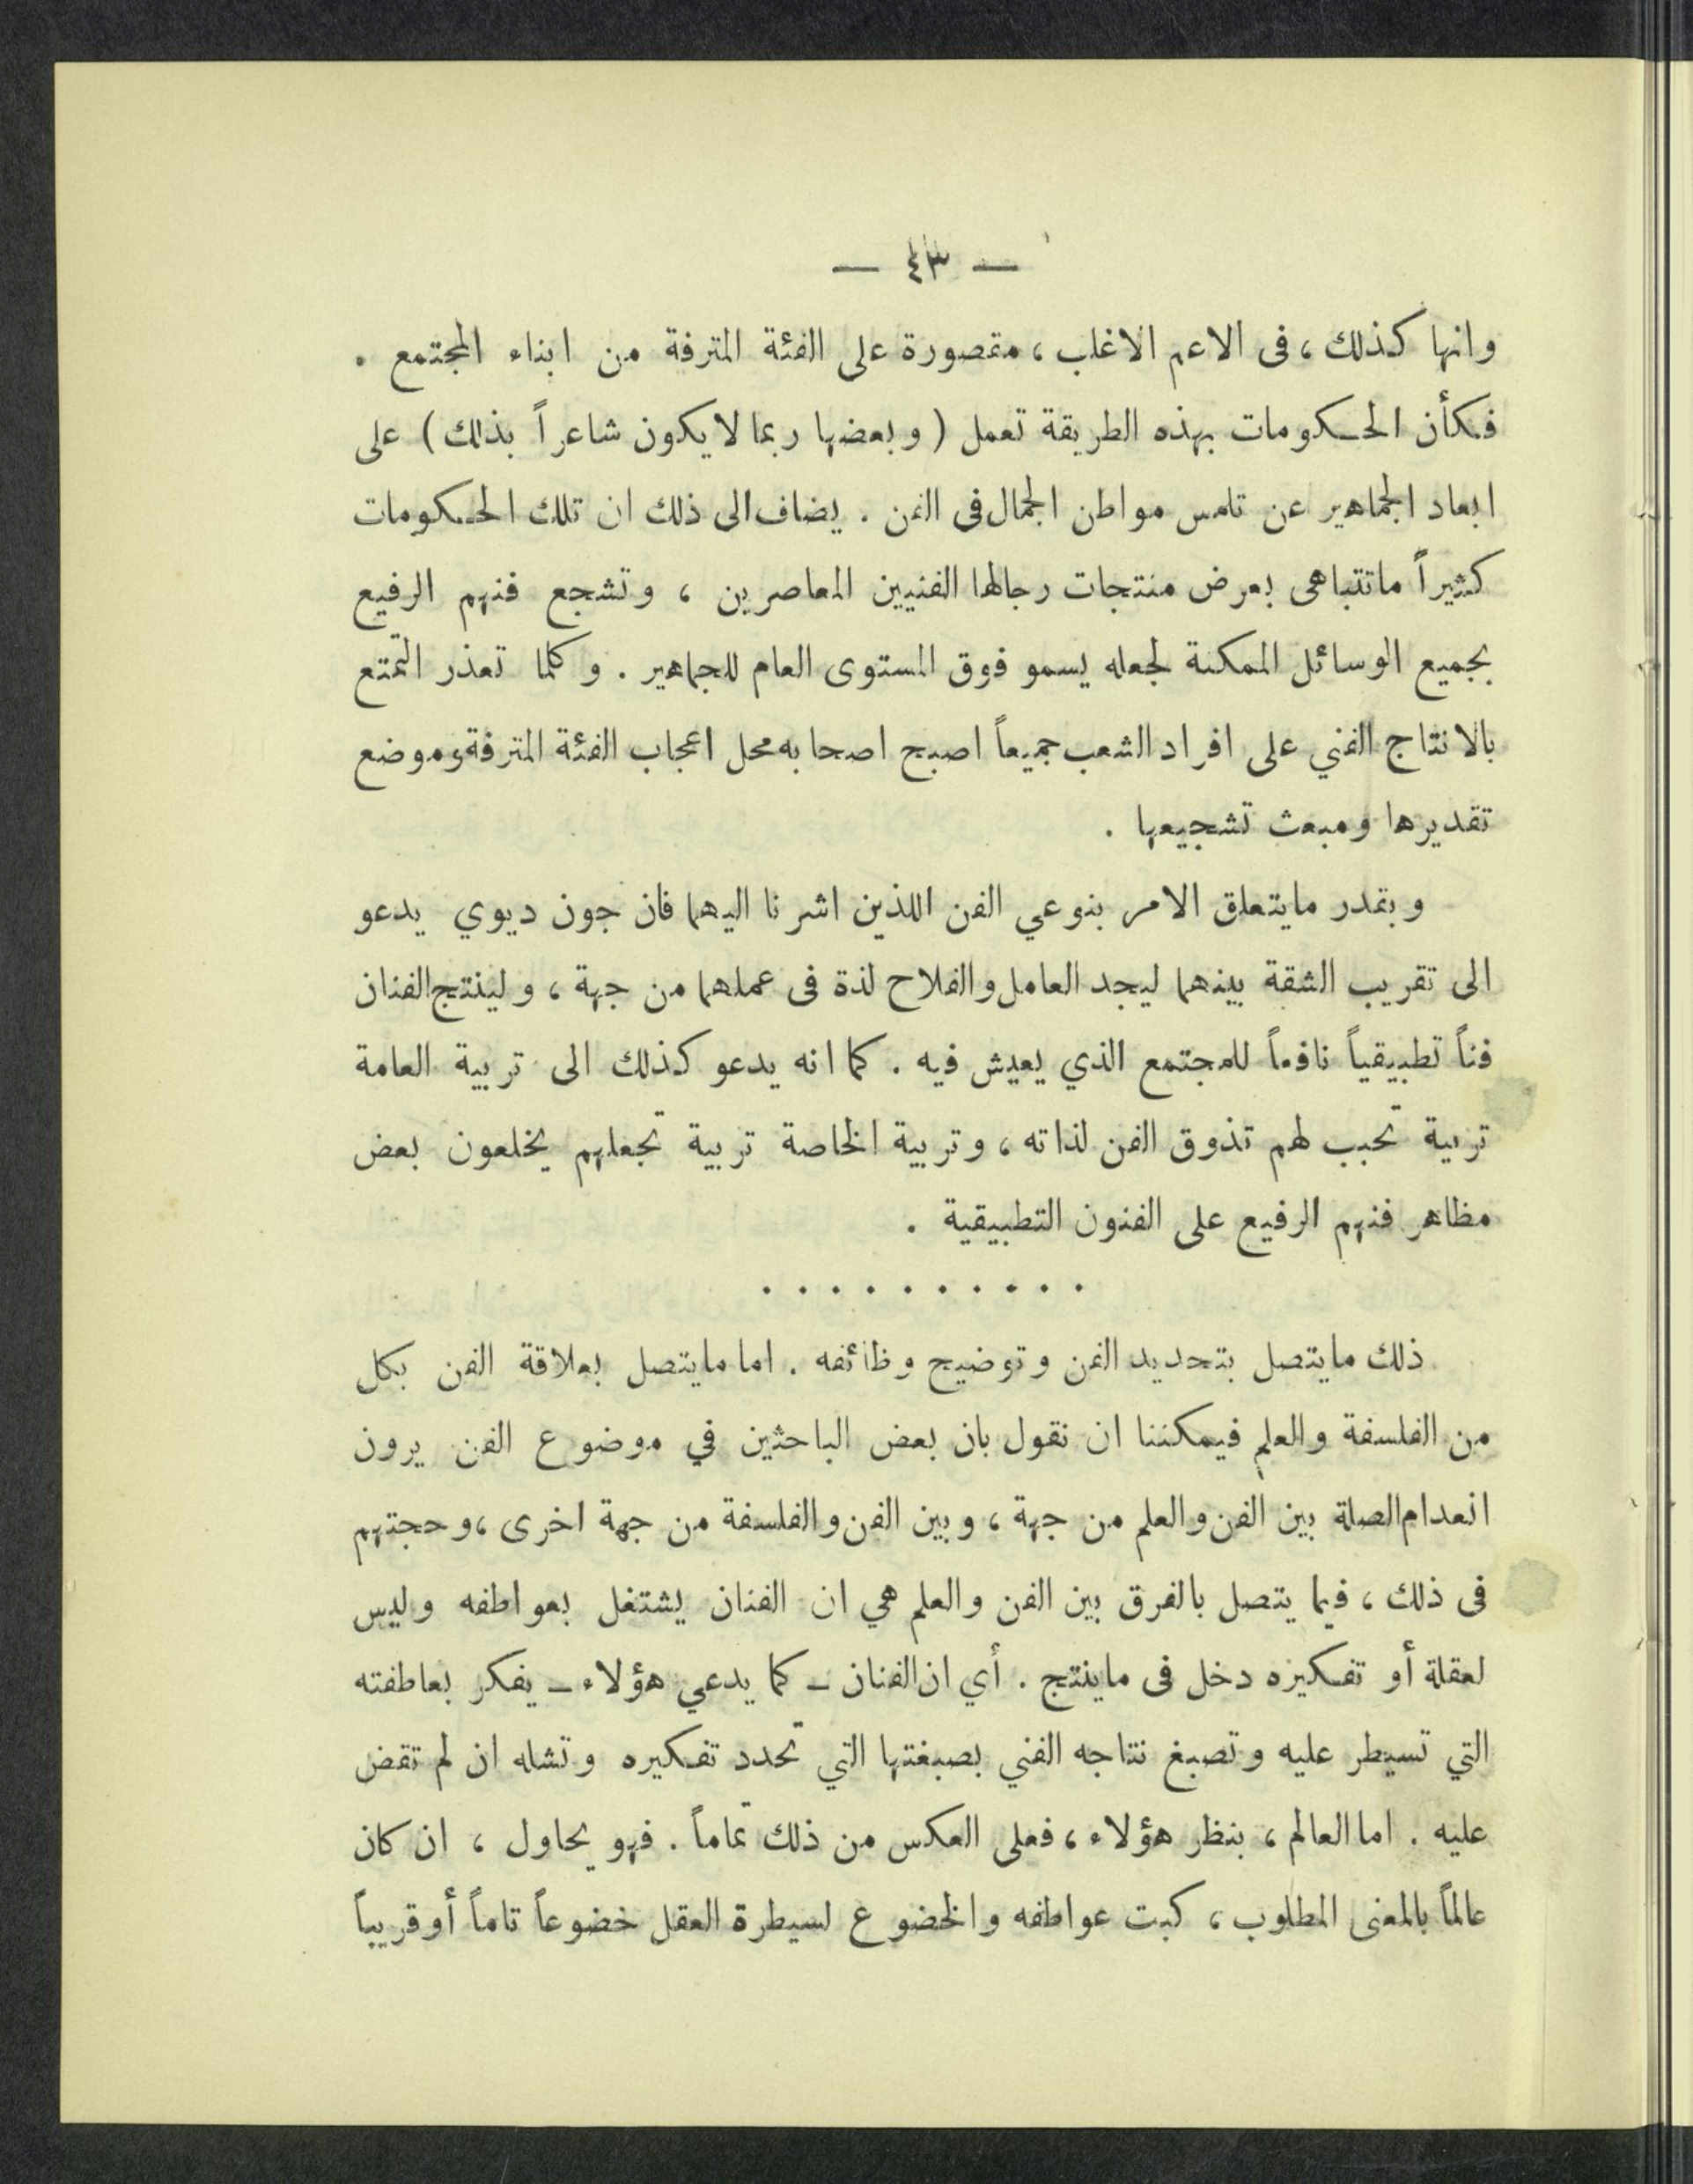 — ٤٣ —
وانها كذلك ، فى الاعم الاغلب ، مقصورة على الفئة المترفة من ابناء المجتمع .
فكأن الحكومات بهذه الطريقة تعمل ( وبعضها ربما لا يكون شاعراً بذلك ) على
ابعاد الجماهير عن تلمس مواطن الجمال فى الفن . يضاف الى ذلك ان تلك الحكومات
كثيراً ماتتباهى بعرض منتجات رجالها الفنيين المعاصرين ، وتشجع فنهم الرفيع
بجميع الوسائل الممكنة لجعله يسمو فوق المستوى العام للجماهير . وكلما تعذر التمتع
بالانتاج الفني على افراد الشعب جميعاً اصبح اصحابه محل اعجاب الفئة المترفة وموضع
تقديرها ومبعث تشجيعها .
وبقدر مايتعلق الامر بنوعي الفن اللذين اشرنا اليهما فان جون ديوي يدعو
الى تقريب الشقة بينهما ليجد العامل والفلاح لذة فى عملهما من جهة ، ولينتج الفنان
فناً تطبيقياً نافعاً للمجتمع الذي يعيش فيه . كما انه يدعو كذلك الى تربية العامة
تربية تحبب لهم تذوق الفن لذاته ، وتربية الخاصة تربية تجعلهم يخلعون بعض
مظاهر فنهم الرفيع على الفنون التطبيقية .
. . . . . . . . . .
ذلك مايتصل بتحديد الفن وتوضيح وظائفه . اما مايتصل بعلاقة الفن بكل
من الفلسفة والعلم فيمكننا ان نقول بان بعض الباحثين في موضوع الفن يرون
انعدام الصلة بين الفن والعلم من جهة ، وبين الفن والفلسفة من جهة اخرى ، وحجتهم
فى ذلك ، فيما يتصل بالفرق بين الفن والعلم هي ان الفنان يشتغل بعواطفه وليس
لعقلة أو تفكيره دخل فى ماينتج . أي ان الفنان ـ كما يدعي هؤلاء ـ يفكر بعاطفته
التي تسيطر عليه وتصبغ نتاجه الفني بصبغتها التي تحدد تفكيره وتشله ان لم تقض
عليه . اما العالم ، بنظر هؤلاء ، فعلى العكس من ذلك تماماً . فهو يحاول ، ان كان
عالماً بالمعنى المطلوب ، كبت عواطفه والخضوع لسيطرة العقل خضوعاً تاماً أو قريباً